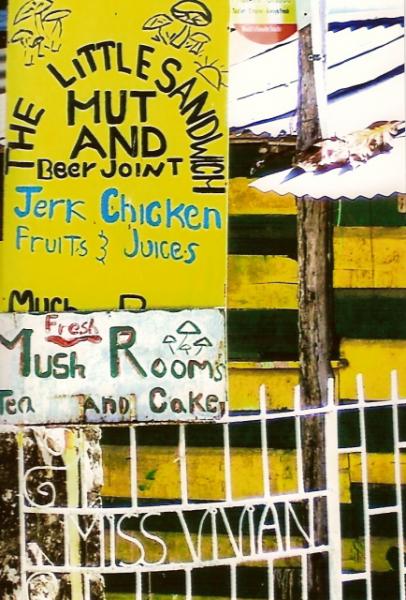 THE LITTLE SANDWICH
MUT
AND
Beer JOINT
Jerk Chicken
Fruits & Juices
Much
Fresh
Mush Rooms
Tea AND Cake
MISS VIVIAN